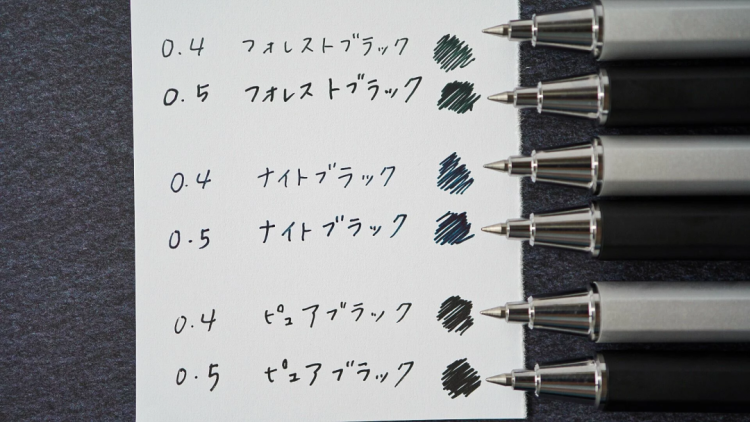 0.4 フォレストブラック
0.5 フォレストブラック
0.4 ナイトブラック
0.5 ナイトブラック
0.4 ピュアブラック
0.5 ピュアブラック